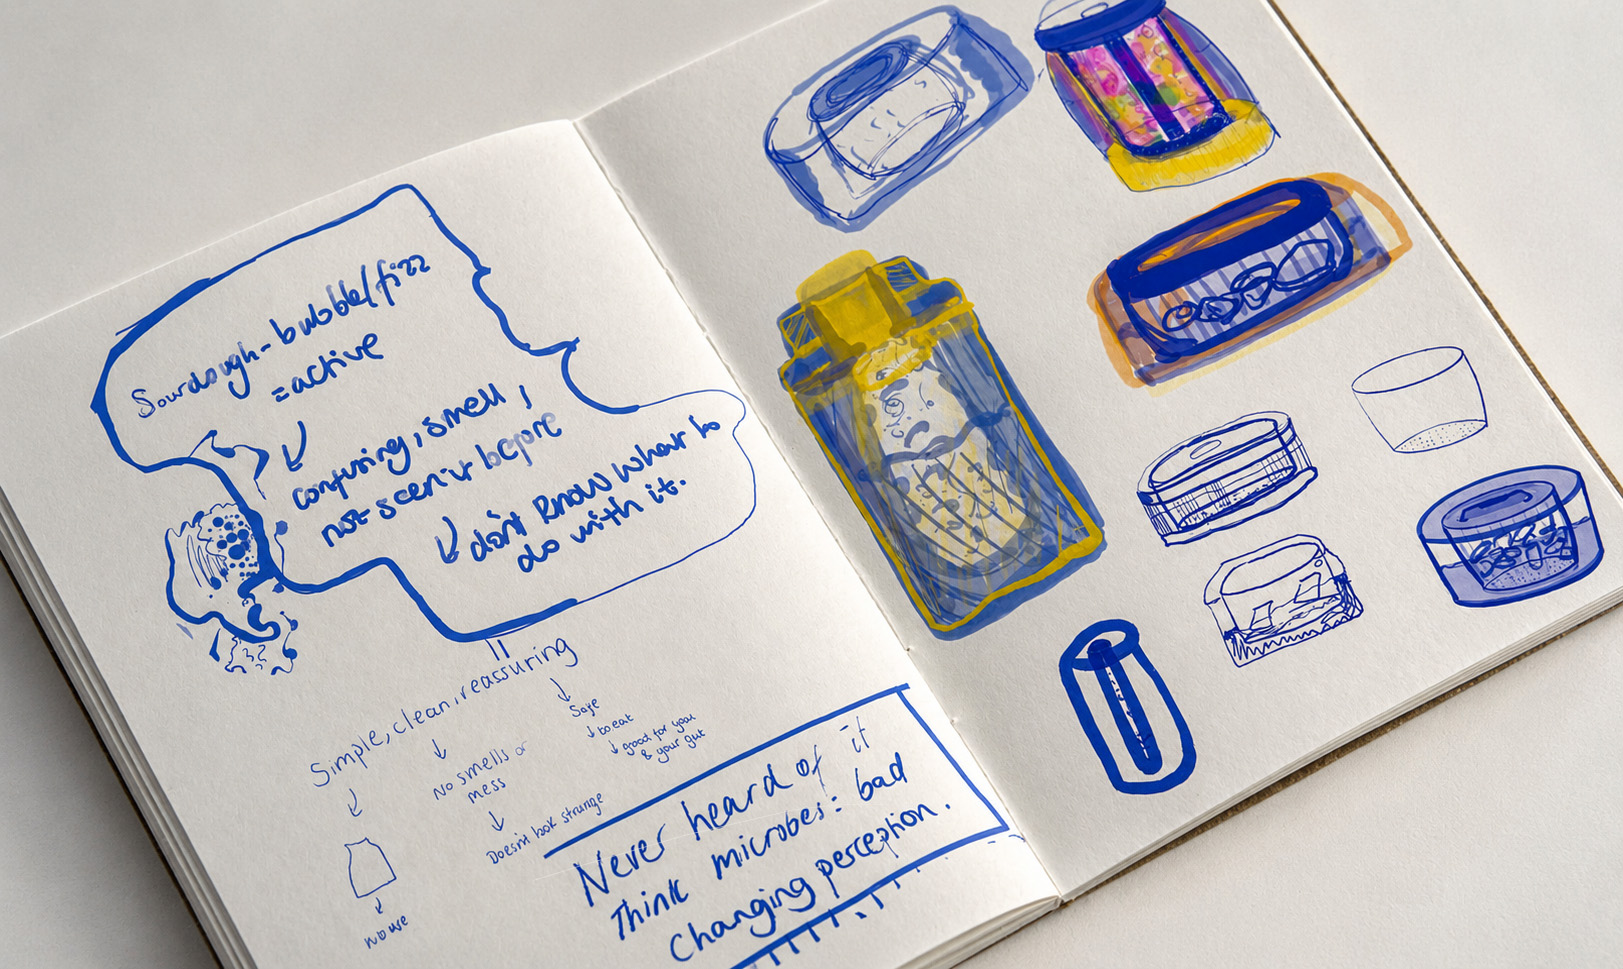 Sourdough - bubble/fizz
= active
confusing, smell,
not seen it before
don't know what to
do with it.
Simple, clean, reassuring
Safe
to eat
good for you
& your gut
No smells or
mess
Doesn't look strange
Never heard of it
Think microbes: bad
Changing perception.